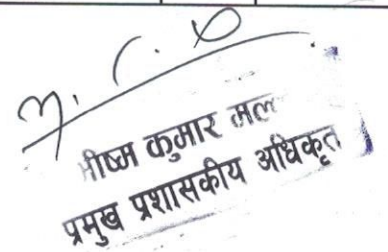 भीष्म कुमार मल्ल
प्रमुख प्रशासकीय अधिकृत